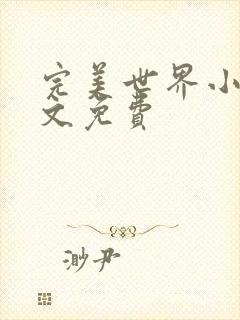 完美世界小
文免费
渺尹